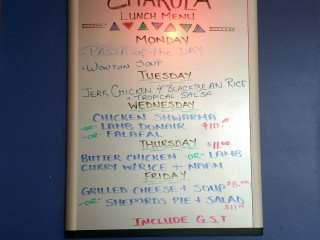 CHAKULA
LUNCH MENU
MONDAY
PASTA-of-the DAY
• WONTON SOUP
TUESDAY
JERK CHICKEN & BLACKBEAN RICE
+ TROPICAL SALSA
WEDNESDAY
CHICKEN SHWARMA
-or- LAMB DONAIR $10.00
-or- FALAFAL
THURSDAY $11.00
BUTTER CHICKEN -OR- LAMB
CURRY W/RICE + NAAN
FRIDAY
GRILLED CHEESE + SOUP $8.00
-or- SHEPORDS PIE + SALAD
$11.00
INCLUDE G.S.T